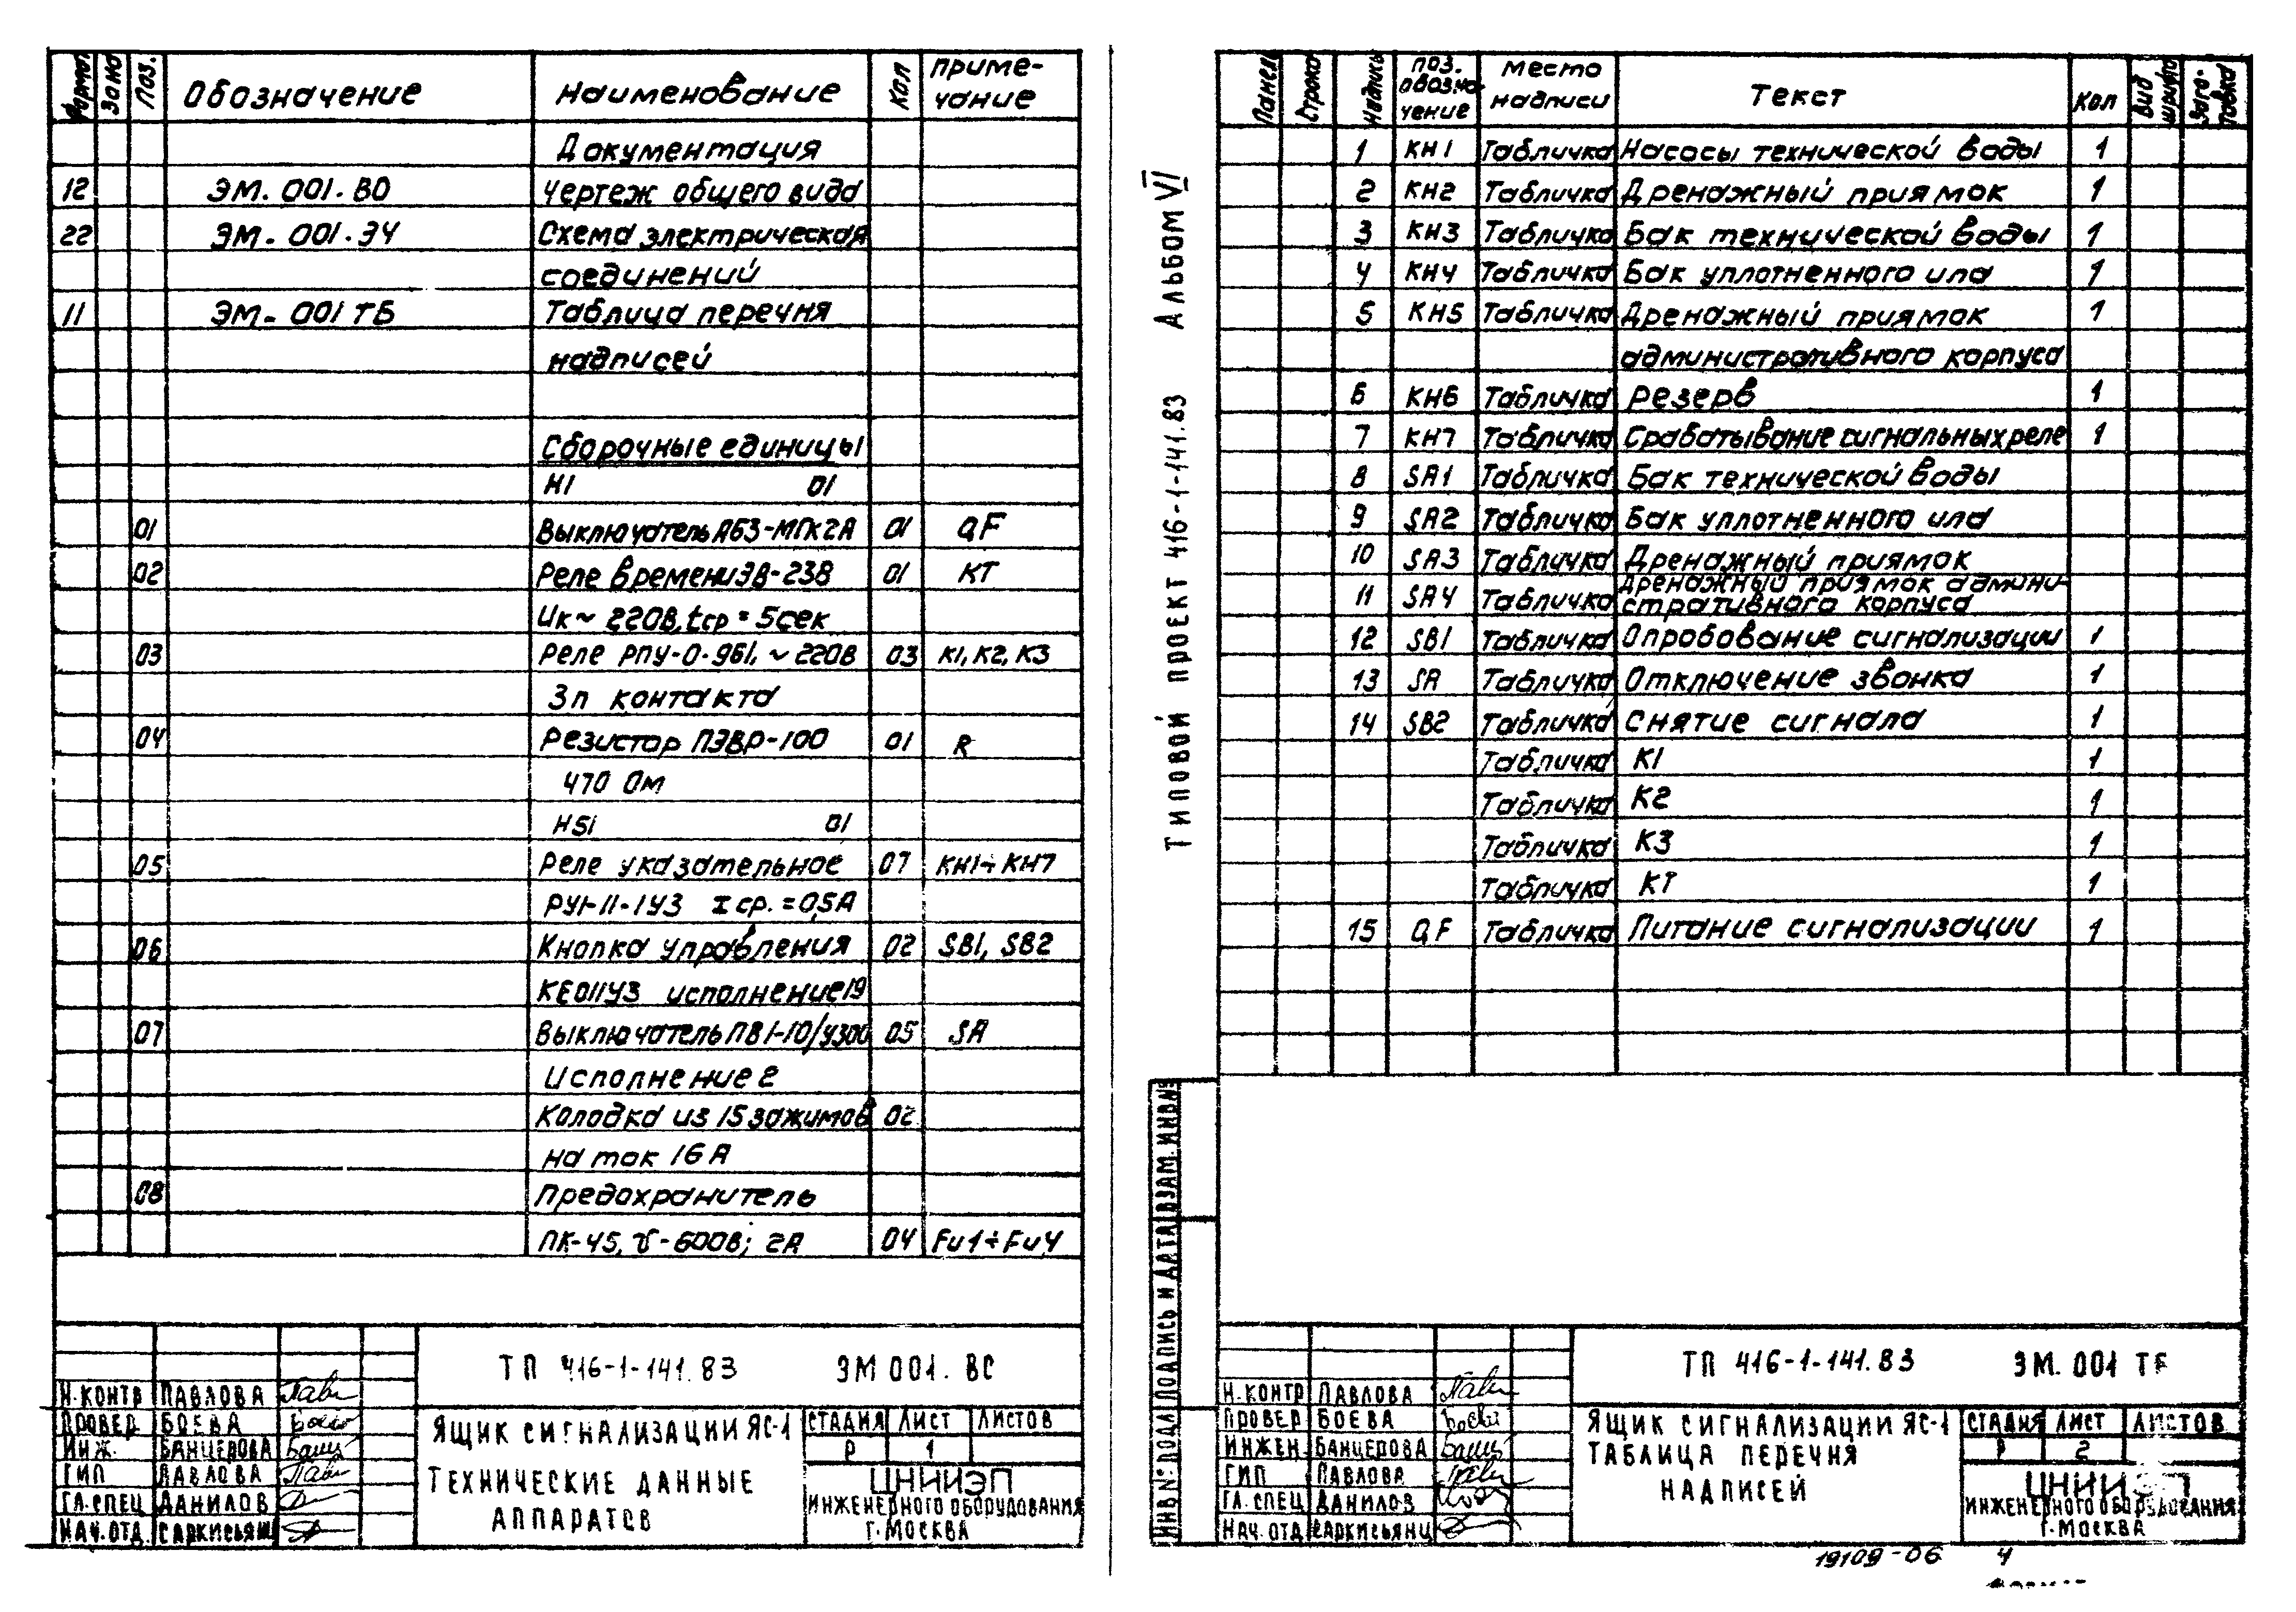 Формат Зона Поз. Обозначение Наименование Кол Приме-
чание
Документация
12 ЭМ. 001. ВО Чертеж общего вида
22 ЭМ. 001. ЭЧ Схема электрическая
соединений
11 ЭМ. 001 ТБ Таблица перечня
надписей
Сборочные единицы
Н1 01
01 Выключатель АБ3-МПК2А 01 QF
02 Реле времени ЭВ-238 01 КТ
Uк~ 220В, tср = 5сек
03 Реле РПУ-0-961, ~ 220В 03 К1, К2, К3
3п контакта
04 Резистор ПЭВР-100 01 R
470 Ом
Н51 01
05 Реле указательное 07 КН1÷КН7
РУ1-11-1У3 Iср. = 0,5А
06 Кнопка управления 02 SB1, SB2
КЕ011У3 исполнение 19
07 Выключатель ПВ1-10/У300 05 SA
Исполнение 2
Колодка из 15 зажимов 02
на ток 16 А
08 Предохранитель
ПК-45, U-600В; 2А 04 Fu1÷Fu4
ТП 416-1-141.83 ЭМ 001. ВС
Н.КОНТР ПАВЛОВА
ПРОВЕР БОЕВА
ИНЖ. БАНЦЕРОВА
ГИП ПАВЛОВА
ГЛ.СПЕЦ ДАНИЛОВ
НАЧ.ОТД. САРКИСЬЯНЦ
ЯЩИК СИГНАЛИЗАЦИИ ЯС-1
ТЕХНИЧЕСКИЕ ДАННЫЕ
АППАРАТОВ
СТАДИЯ ЛИСТ ЛИСТОВ
Р 1
ЦНИИЭП
ИНЖЕНЕРНОГО ОБОРУДОВАНИЯ
Г. МОСКВА
ТИПОВОЙ ПРОЕКТ 416-1-141.83 АЛЬБОМ VI
Панель Строка Надпись Поз. обозна-
чение Место
надписи Текст Кол Вид
шрифта Заго-
товка
1 КН1 Табличка Насосы технической воды 1
2 КН2 Табличка Дренажный приямок 1
3 КН3 Табличка Бак технической воды 1
4 КН4 Табличка Бак уплотненного ила 1
5 КН5 Табличка Дренажный приямок 1
административного корпуса
6 КН6 Табличка Резерв 1
7 КН7 Табличка Срабатывание сигнальных реле 1
8 SA1 Табличка Бак технической воды
9 SA2 Табличка Бак уплотненного ила
10 SA3 Табличка Дренажный приямок
11 SA4 Табличка Дренажный приямок админи-
стративного корпуса
12 SB1 Табличка Опробование сигнализации 1
13 SA Табличка Отключение звонка 1
14 SB2 Табличка Снятие сигнала 1
Табличка К1 1
Табличка К2 1
Табличка К3 1
Табличка КТ 1
15 QF Табличка Питание сигнализации 1
ИНВ № ПОДЛ ПОДПИСЬ И ДАТА ВЗАМ. ИНВ №
ТП 416-1-141.83 ЭМ. 001 ТБ
Н.КОНТР ПАВЛОВА
ПРОВЕР БОЕВА
ИНЖЕН. БАНЦЕРОВА
ГИП ПАВЛОВА
ГЛ. СПЕЦ ДАНИЛОВ
НАЧ. ОТД САРКИСЬЯНЦ
ЯЩИК СИГНАЛИЗАЦИИ ЯС-1
ТАБЛИЦА ПЕРЕЧНЯ
НАДПИСЕЙ
СТАДИЯ ЛИСТ ЛИСТОВ
Р 2
ЦНИИЭП
ИНЖЕНЕРНОГО ОБОРУДОВАНИЯ
Г. МОСКВА
19109-06 4